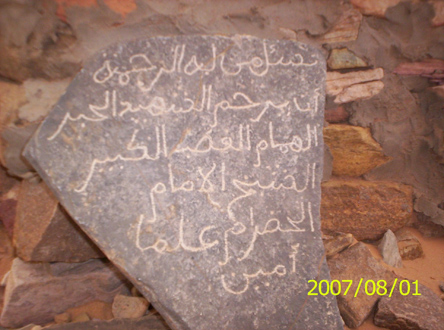 نسئل من له الرحمه
أن يرحم الشهيد الحبر
الهمام القصد الكبير
الشيخ الإمام
الحضرام علما
أمين
2007/08/01